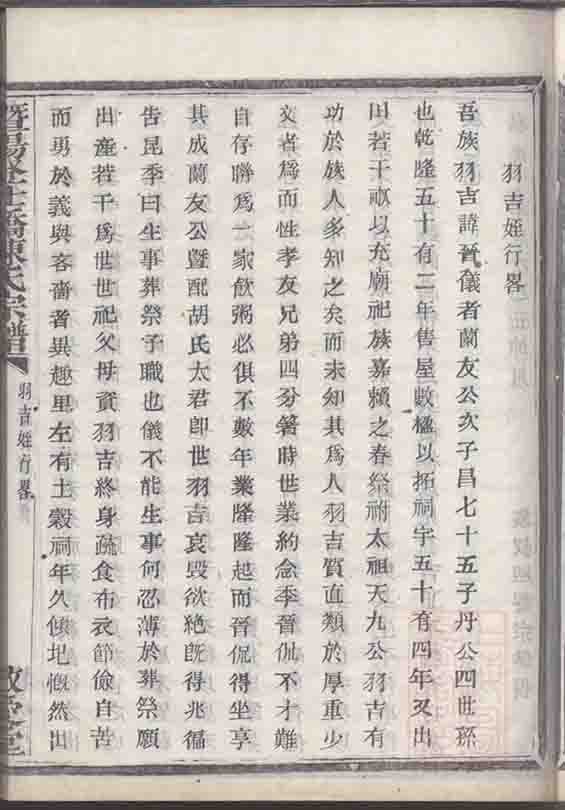 羽吉姪行畧
吾族羽吉諱晉儀者蘭友公次子昌七十五子丹公四世孫
也乾隆五十有二年售屋數楹以拓祠宇五十有四年又出
田若干畝以充廟祀族嘉賴之春祭祔太祖天九公羽吉有
功於族人多知之矣而未知其爲人羽吉質直類於厚重少
文者爲而性孝友兄弟四分箸時世業約念季晉侃不才難
自存聯爲一家飲粥必俱不數年業隆隆起而晉侃得坐享
其成蘭友公曁配胡氏太君卽世羽吉哀毀欲絶旣得兆徧
告昆季曰生事葬祭子職也儀不能生事何忍薄於葬祭願
出產若干爲世世祀父母資羽吉終身疏食布衣節儉自苦
而勇於義與吝嗇者異趣里左有土穀祠年久傾圯慨然出
陳氏宗譜
羽吉姪行畧